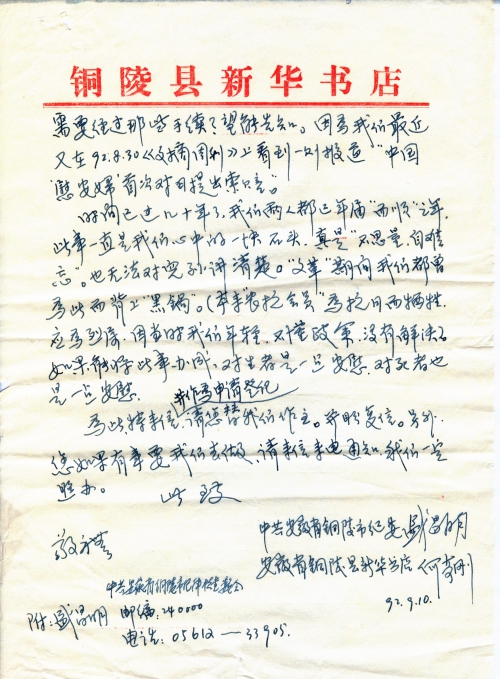 铜陵县新华书店
需要经过那些手续？望能告知。因为我们最近
又在92.8.30《文摘周刊》上看到一则报道"中国
慰安妇'首次对日提出索赔"。
时间已过几十年了，我们两人都已年届"而顺"之年，
此事一直是我们心中的一块石头，真是"不思量，自难
忘"。也无法对儿孙讲清楚。"文革"期间我们都曾
为此而背上"黑锅"。（ 为抗日而牺牲，
应为烈属，因当时我们年轻，不懂政策，没有解决）
如果能将此事办成，对生者是一点安慰，对死者也
是一点安慰。
并作为申请登记
为此特来信，请您替我们作主。并盼复信。另外，
您如果有事要我们去做，请来信来电通知，我们一定
照办。 此致
敬礼
中共安徽省铜陵市纪委 盛昌明
安徽省铜陵县新华书店 何
92.9.10.
中共安徽省铜陵市纪律检查委员会
附：盛昌明 邮编：244000
电话：05612—33905.